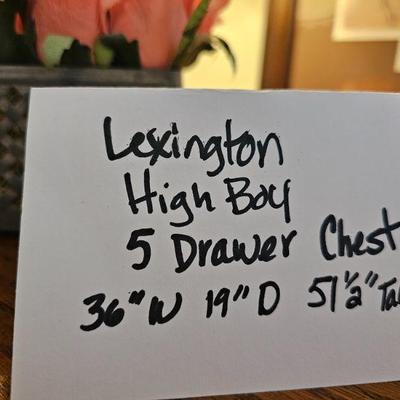 Lexington
High Boy
5 Drawer Chest
36"W 19"D 51½" Ta